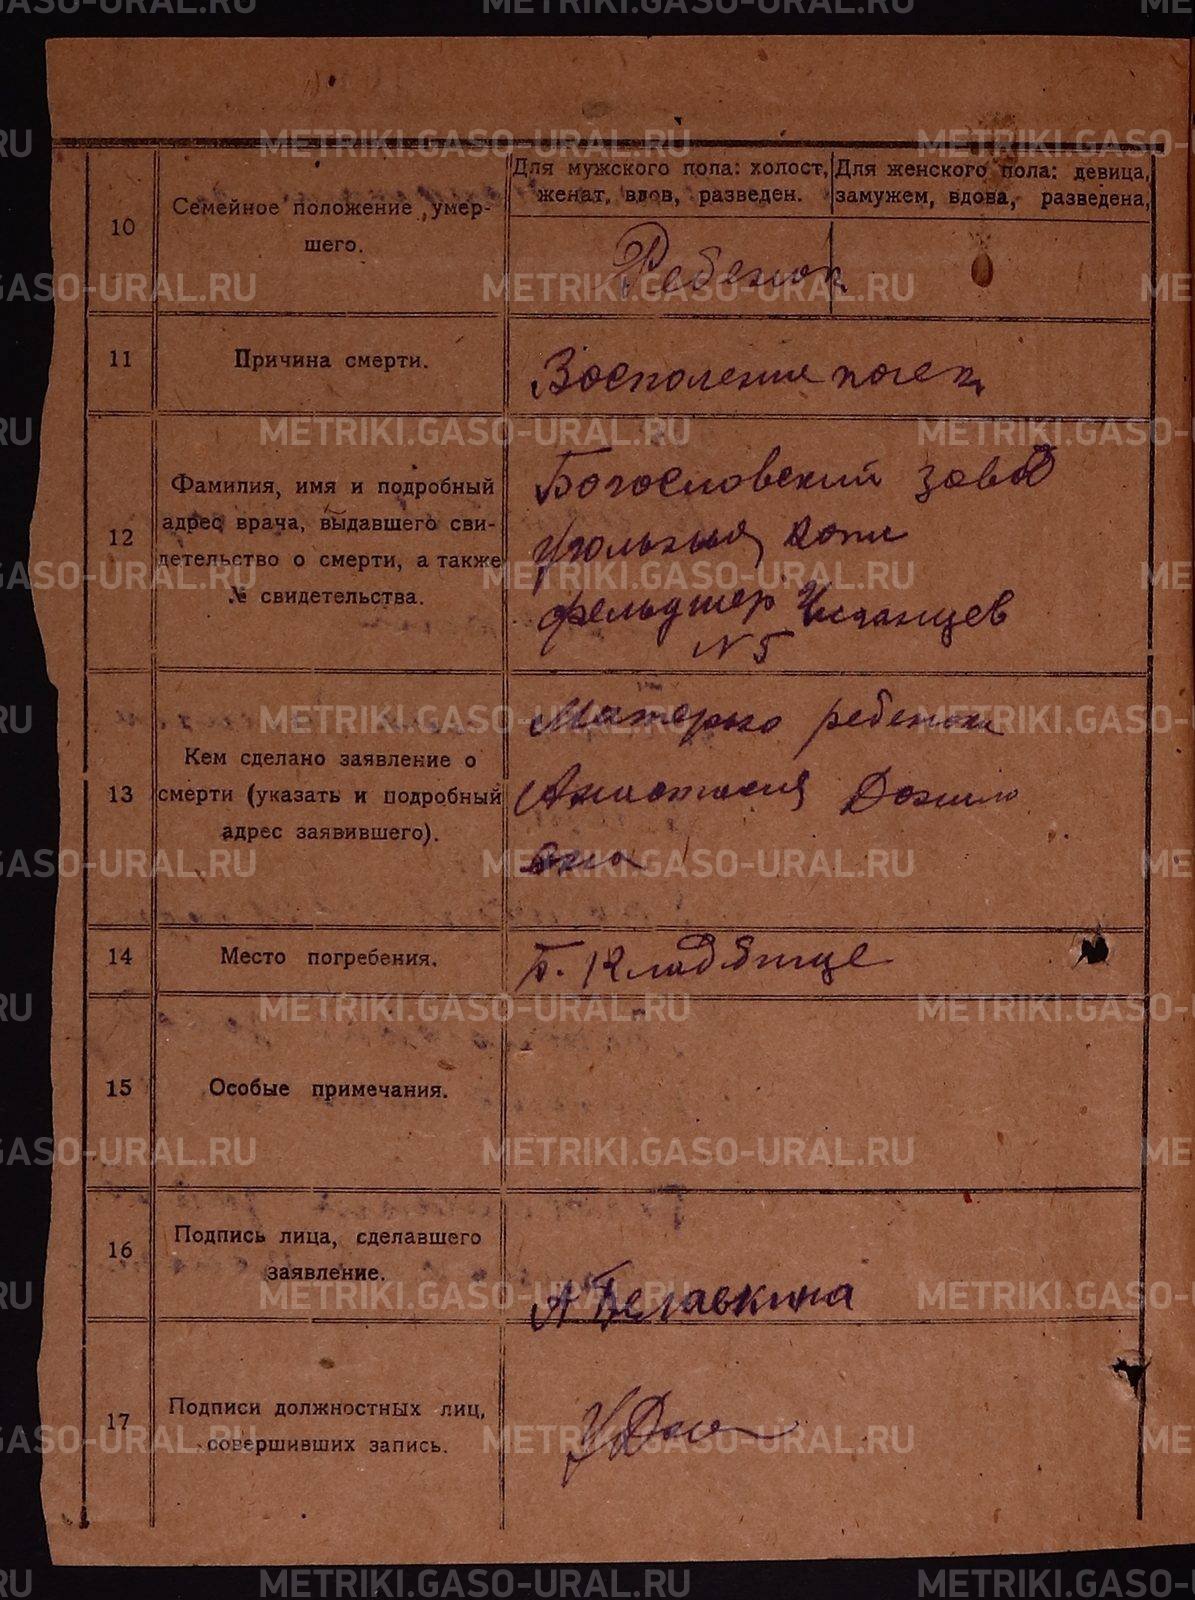 10
Семейное положение умер-
шего.
Для мужского пола: холост,
женат, вдов, разведен.
Для женского пола: девица,
замужем, вдова, разведена,
Ребенок
11
Причина смерти.
Восполение почек
12
Фамилия, имя и подробный
адрес врача, выдавшего сви-
детельство о смерти, а также
№ свидетельства.
Богословский завод
Угольныя копи
фельдшер
N 5
13
Кем сделано заявление о
смерти (указать и подробный
адрес заявившего).
Матерью ребенка
Анастасия Данило
вна
14
Место погребения.
Б. Кладбище
15
Особые примечания.
16
Подпись лица, сделавшего
заявление.
А Белавкина
17
Подписи должностных лиц,
совершивших запись.
METRIKI.GASO-URAL.RU